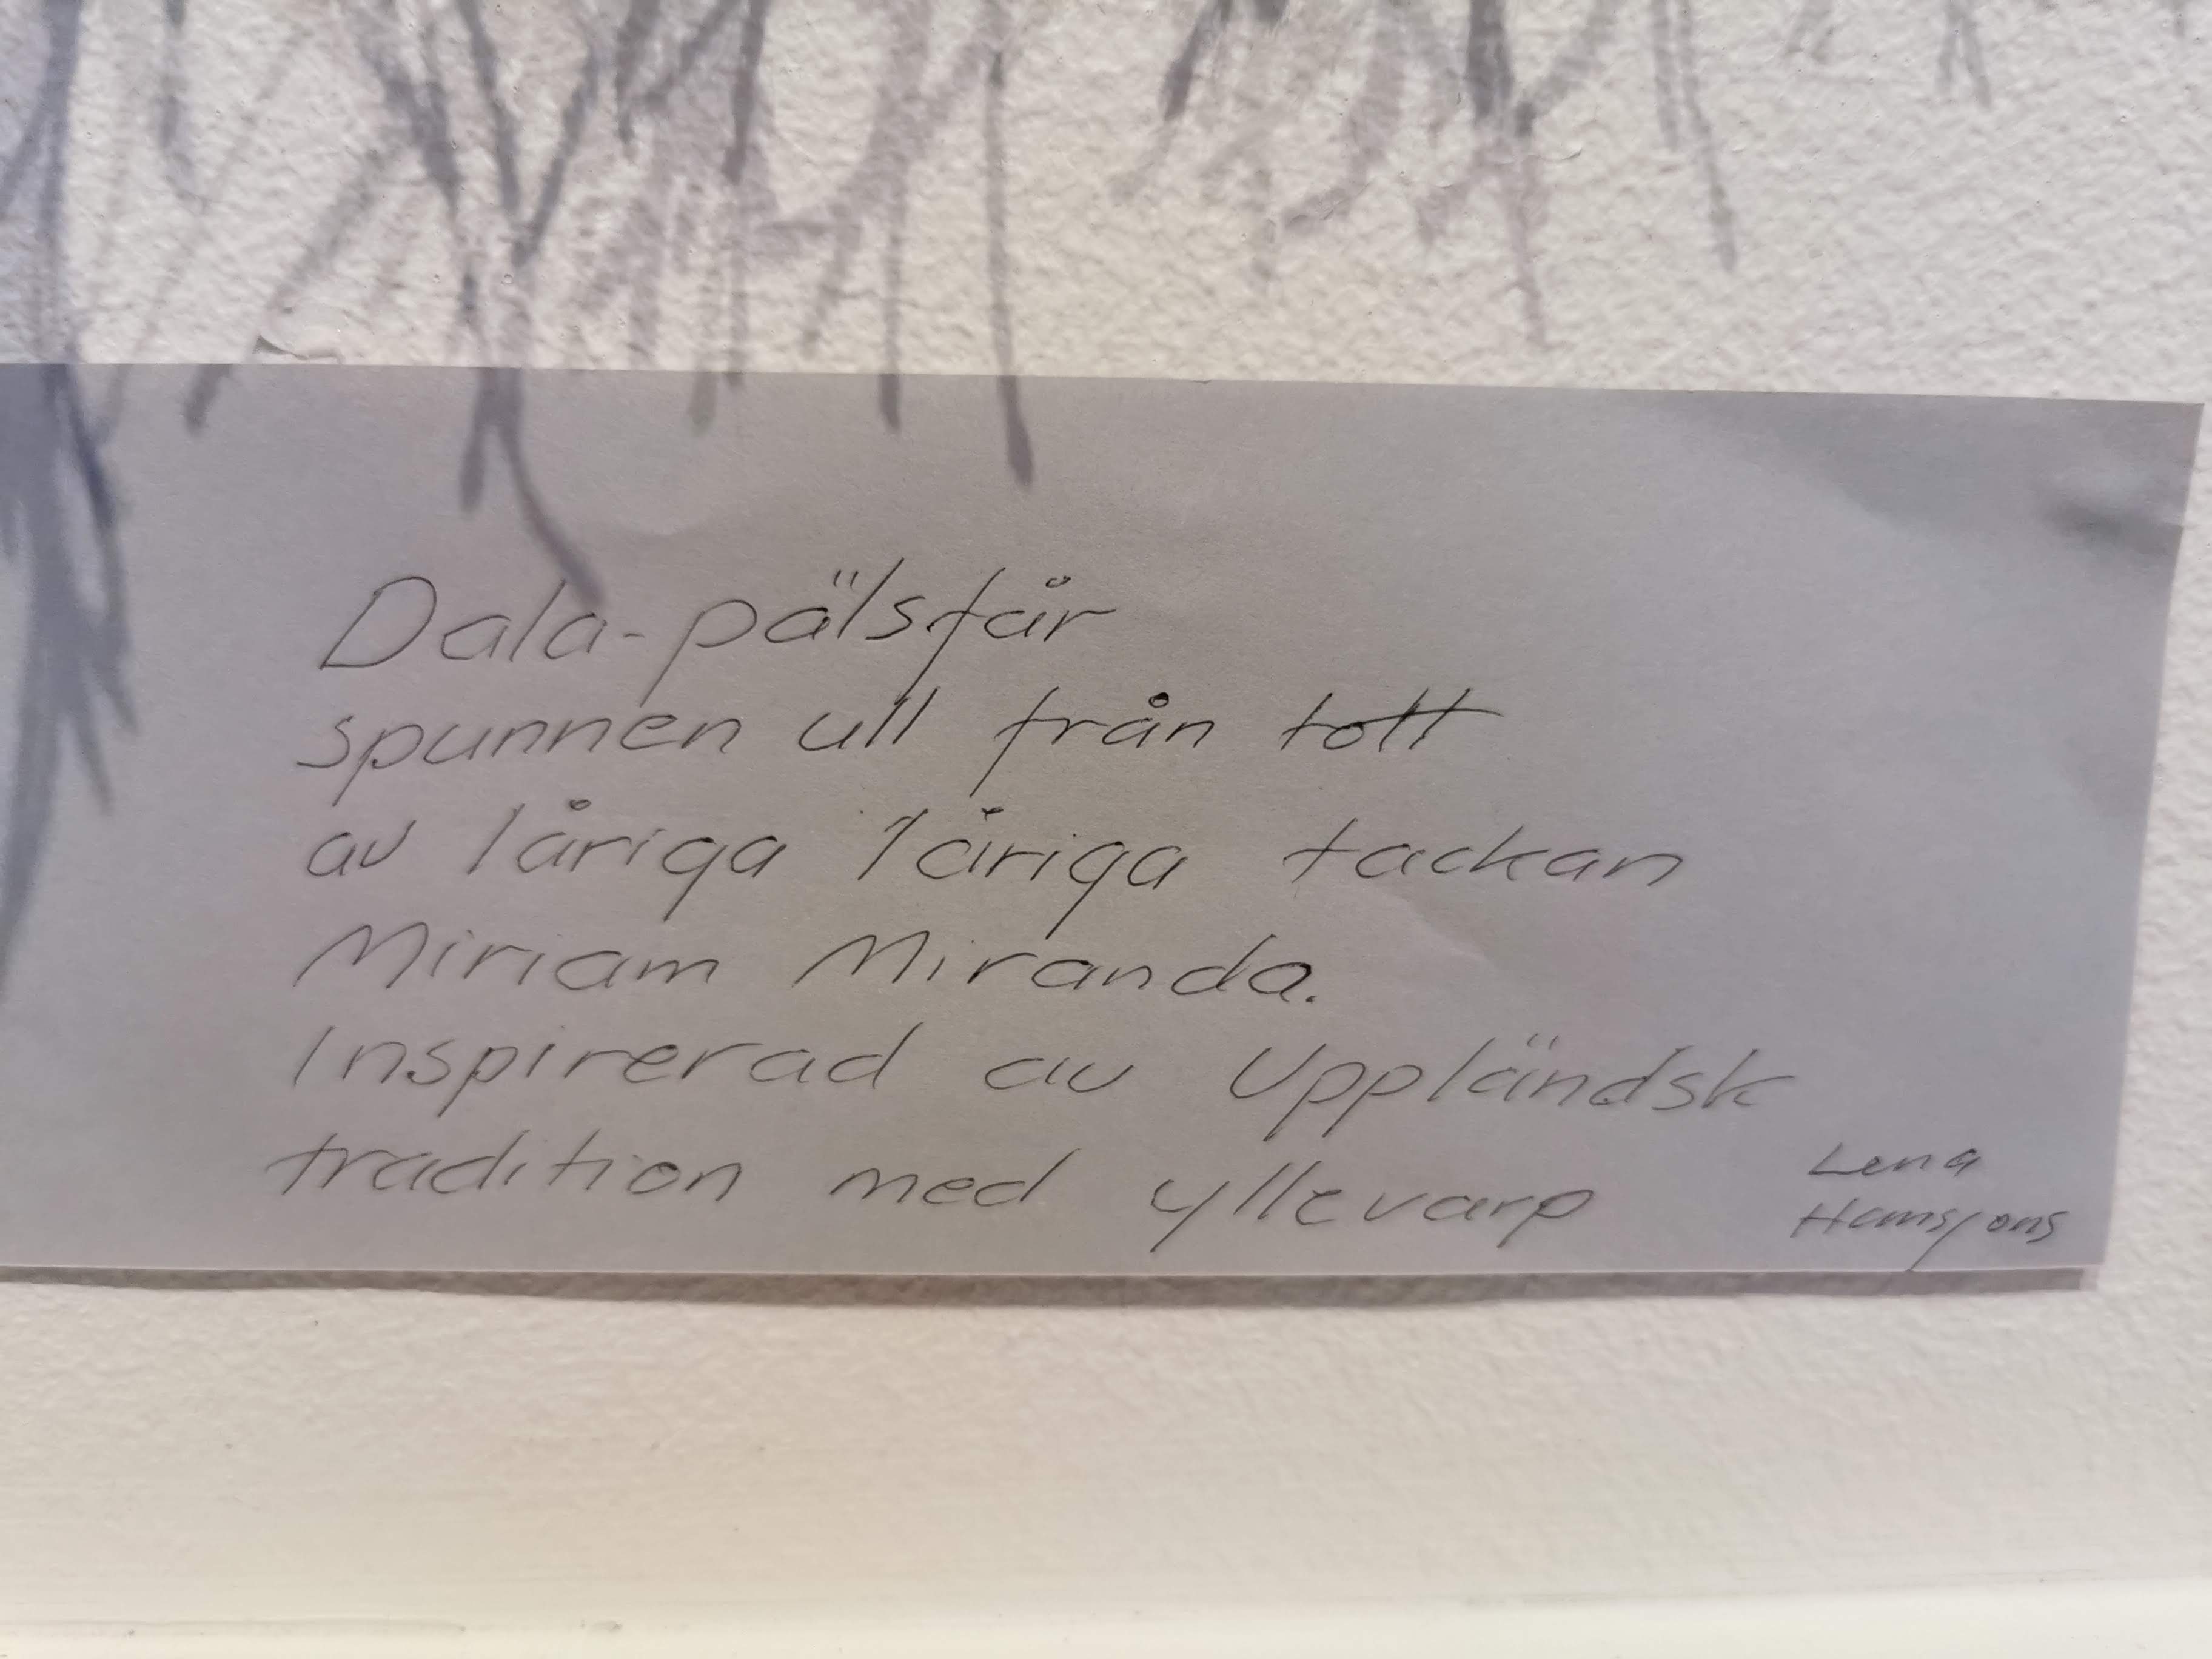 Dala-pälsfår
spunnen ull från tott
av låriga låriga tackan
Miriam Miranda.
Inspirerad av Uppländsk
tradition med yllevarp
Lena
Hansjons